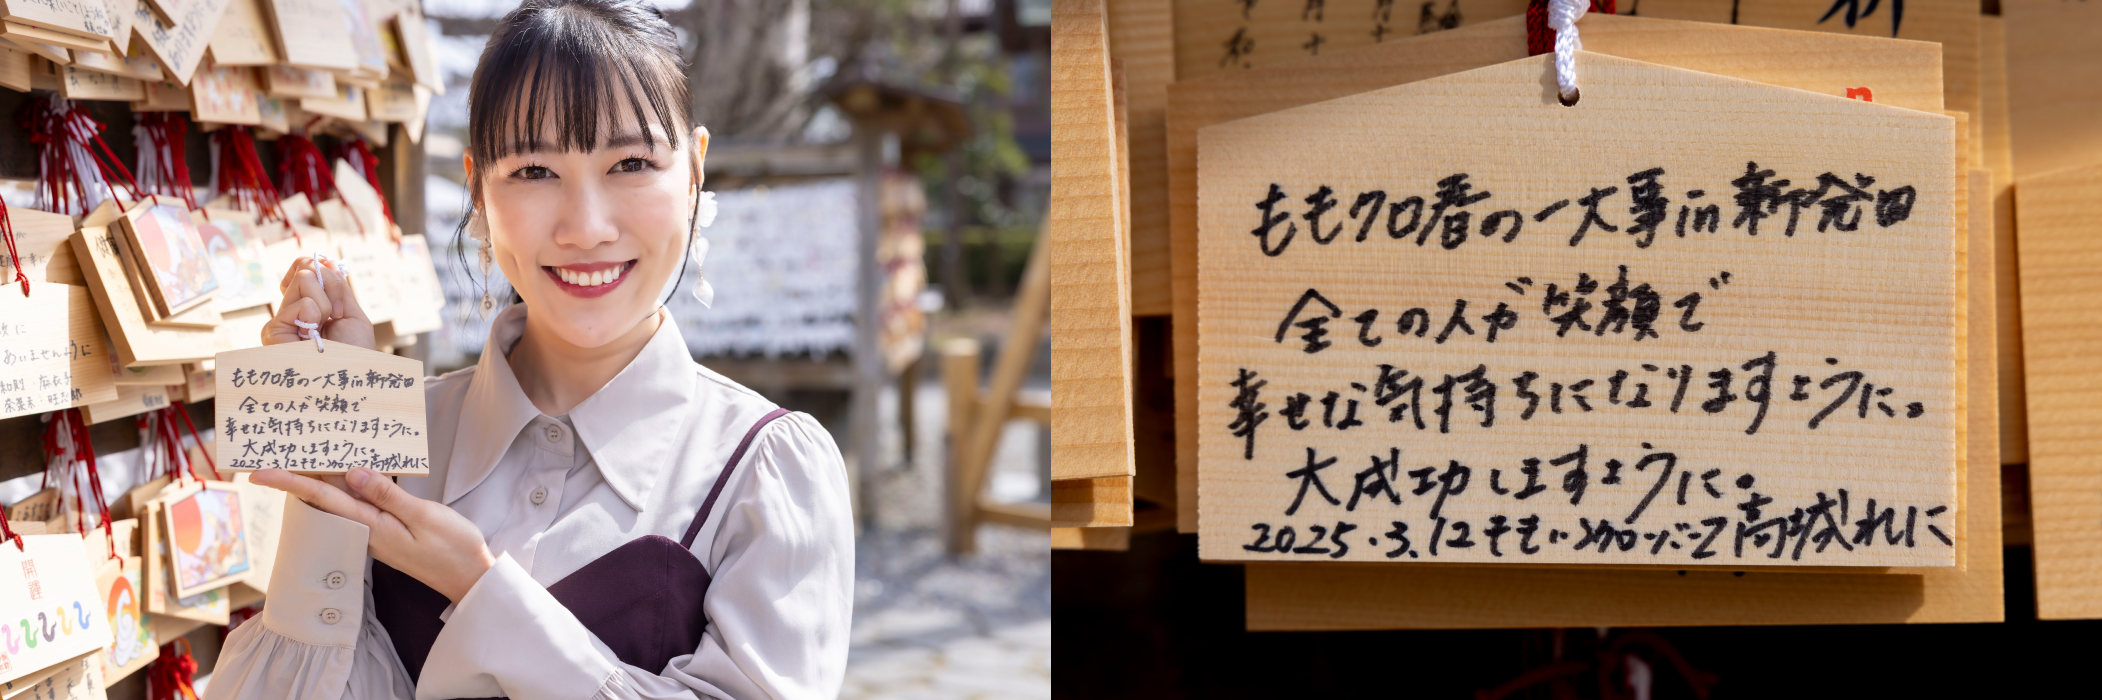 ももクロ春の一大事in新発田
全ての人が笑顔で
幸せな気持ちになりますように。
大成功しますように。
2025.3.12 ももいろクローバーZ 高城れに
ももクロ春の一大事in新発田
全ての人が笑顔で
幸せな気持ちになりますように。
大成功しますように。
2025.3.12 ももいろクローバーZ 高城れに
あいませんように
開運